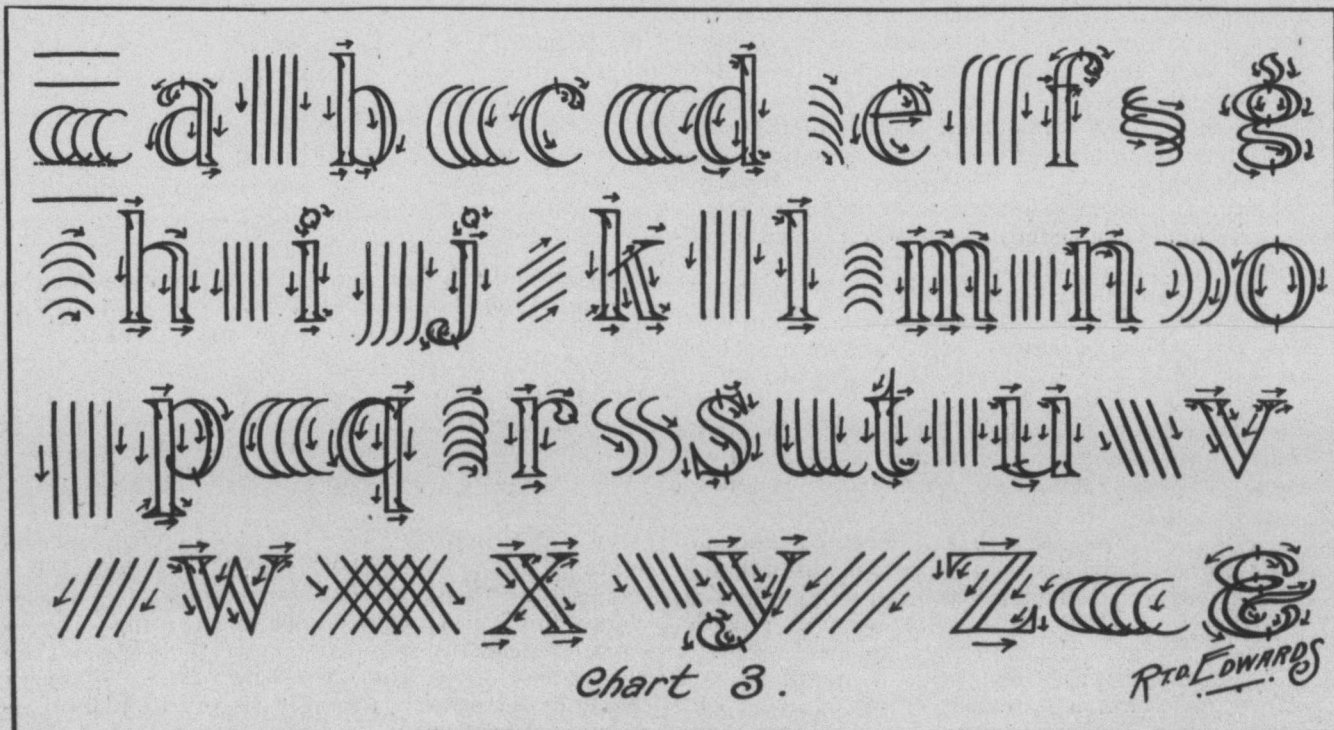 a b c d e f g
h i j k l m n o
p q r s t u v
w x y z &
Chart 3.
R.T.D. EDWARDS